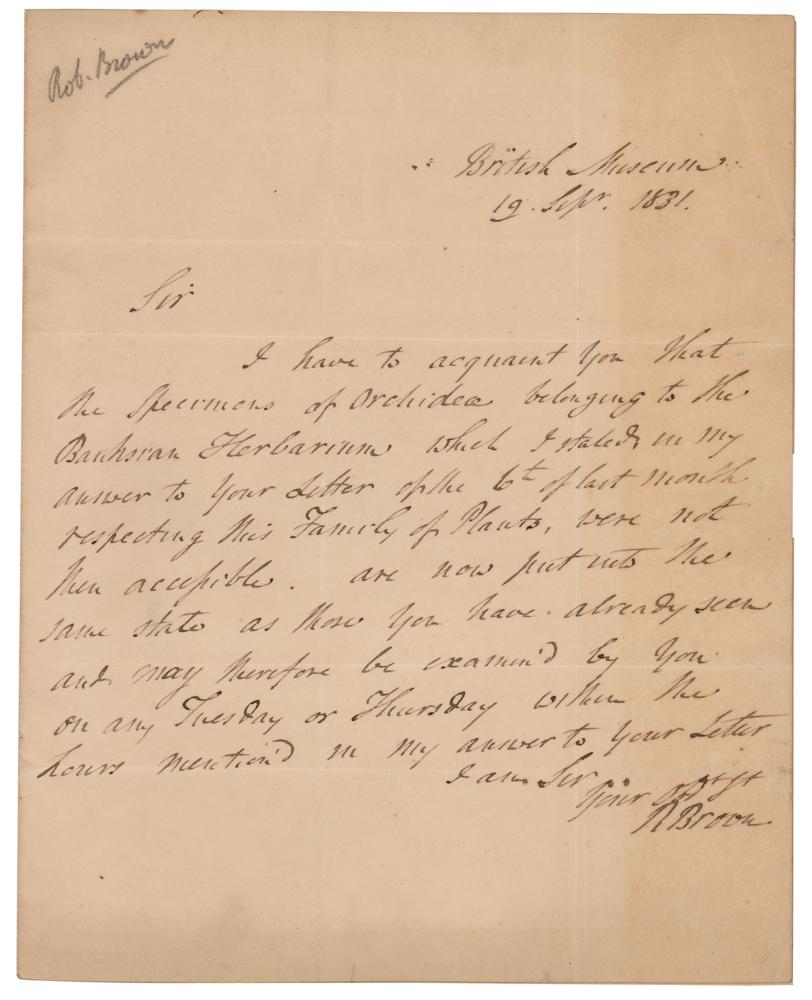 Rob. Brown
British Museum
19. Sepr. 1831.
Sir
I have to acquaint you that
the Specimens of Orchideæ belonging to the
Banksian Herbarium which I stated, in my
answer to your Letter of the 6th of last month
respecting this Family of Plants, were not
then accessible. are now put into the
same state as those you have already seen
and may therefore be examin'd by you
on any Tuesday or Thursday within the
hours mention'd in my answer to your Letter
I am Sir
Your
R Brown